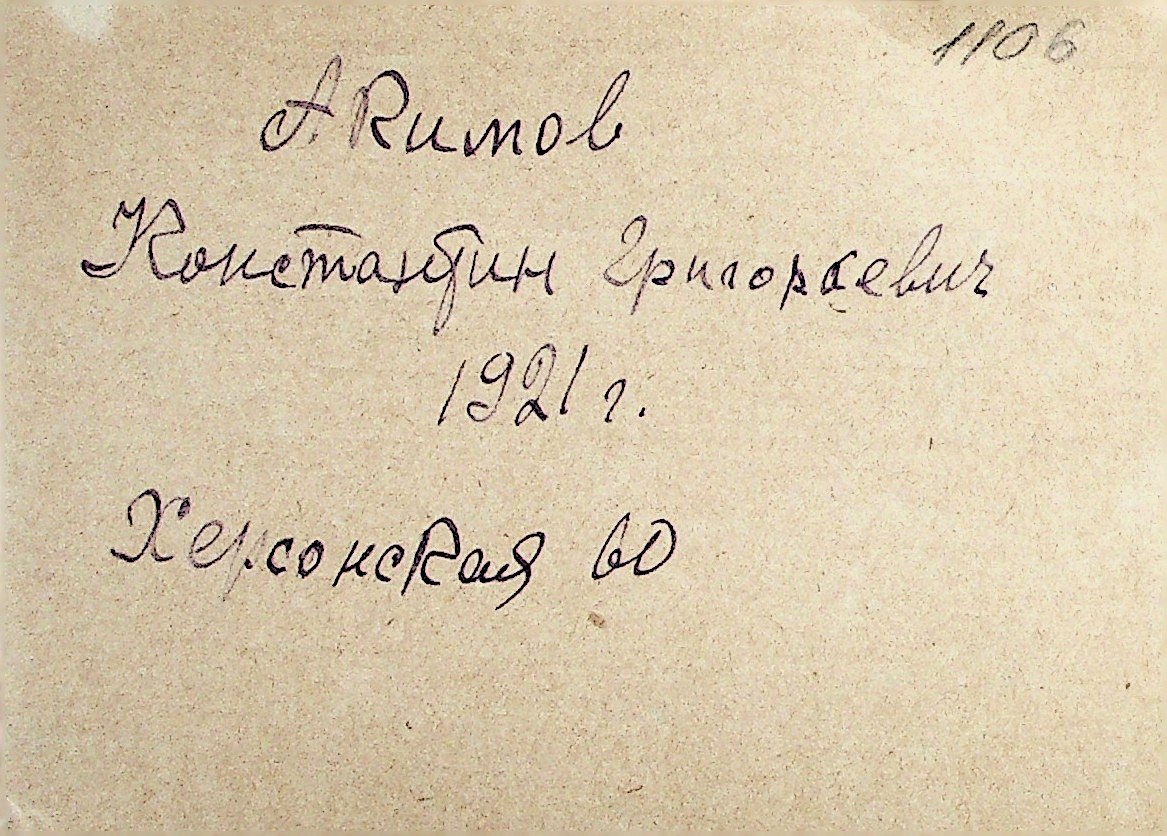 1106
Акимов
Константин Григорьевич
1921 г.
Херсонская 60